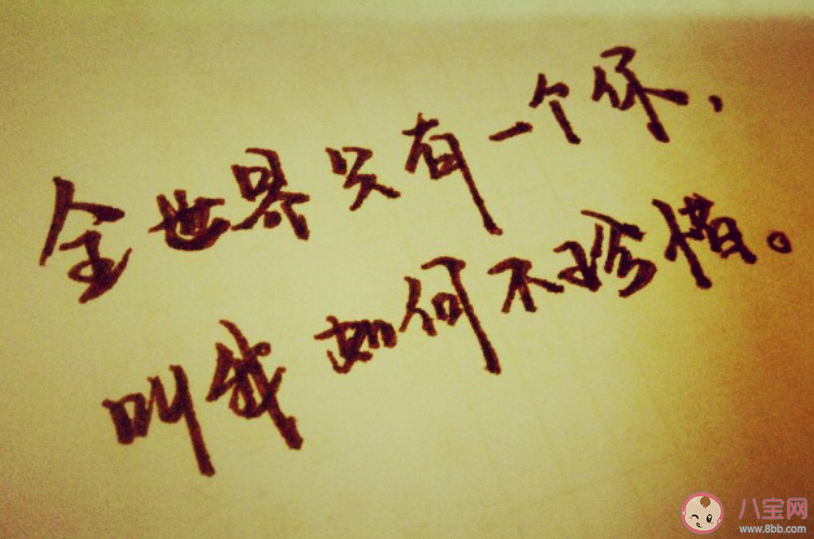 全世界只有一个你，
叫我如何不珍惜。
八宝网
www.8bb.com